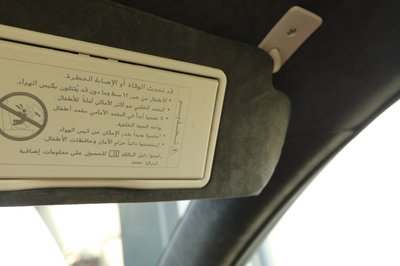 قد تحدث الوفاة أو الإصابة الخطرة.
• الأطفال من عمر ١٢ سنة وما دون قد يُقتلون بكيس الهواء.
• المقعد الخلفي هو أكثر الأماكن أماناً للأطفال.
• لا تضعوا أبداً في المقعد الأمامي مقعد أطفال
يواجه الجهة الخلفية.
• اجلسوا بعيداً بقدر الإمكان عن كيس الهواء.
• إستخدموا دائماً حزام الأمان وحافظات الأطفال.
راجعوا دليل المالك للحصول على معلومات إضافية